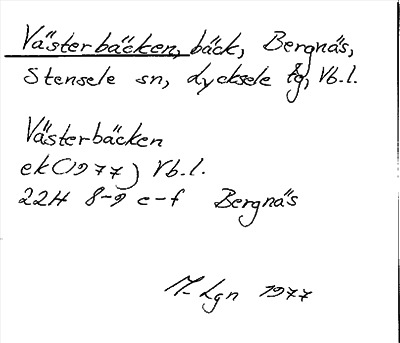 Västerbäcken, bäck, Bergnäs,
Stensele sn, Lycksele tg, Vb.l.
Västerbäcken
ek (1977) Vb.l.
22H 8-9 e-f Bergnäs
M-Lgn 1977